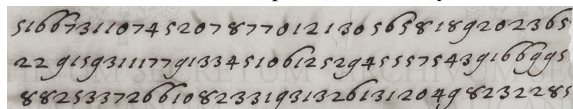 5166731107452078770121305658189202365
22915931117791334510612529455575439166995
88253372661082331931326131204982322285